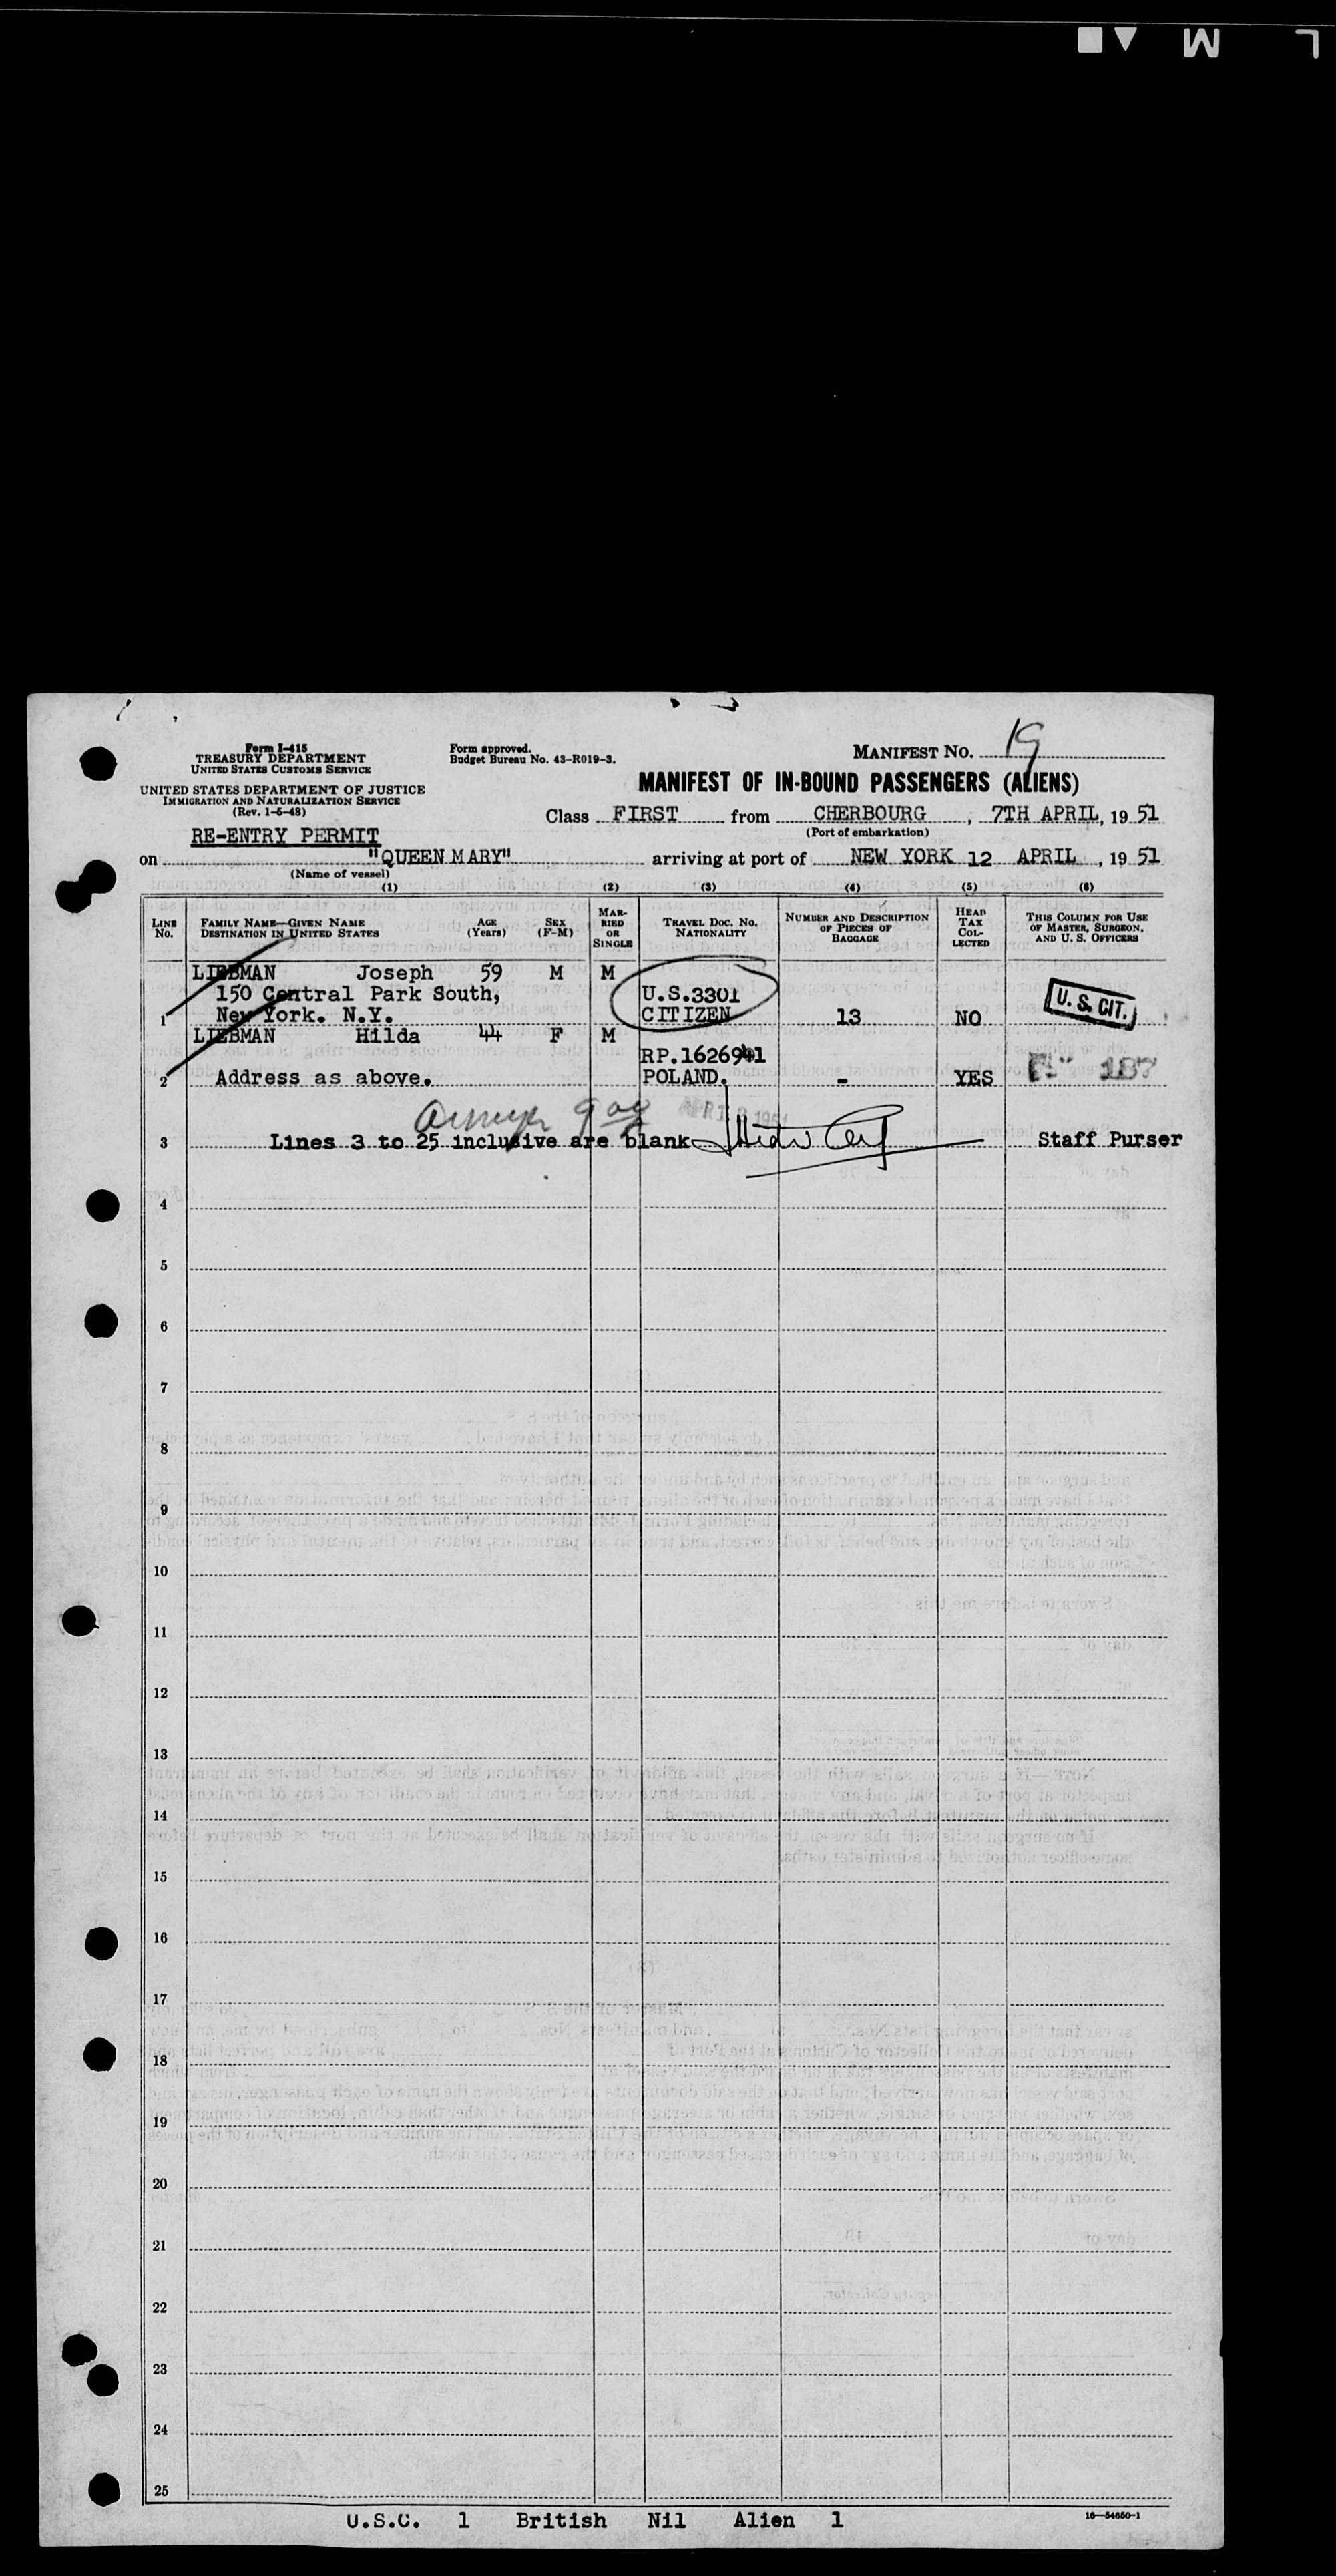 Form I-415
TREASURY DEPARTMENT
UNITED STATES CUSTOMS SERVICE
UNITED STATES DEPARTMENT OF JUSTICE
IMMIGRATION AND NATURALIZATION SERVICE
(Rev. 1-6-48)
Form approved.
Budget Bureau No. 43-R019-3.
MANIFEST NO. 19
MANIFEST OF IN-BOUND PASSENGERS (ALIENS)
Class FIRST from CHERBOURG, 7TH APRIL, 19 51
(Port of embarkation)
RE-ENTRY PERMIT
on "QUEEN MARY" arriving at port of NEW YORK 12 APRIL, 19 51
(Name of vessel)
(1) (2) (3) (4) (5) (6)
LINE NO.
FAMILY NAME—GIVEN NAME
DESTINATION IN UNITED STATES
AGE (Years)
SEX (F-M)
MARRIED OR SINGLE
TRAVEL DOC. NO.
NATIONALITY
NUMBER AND DESCRIPTION OF PIECES OF BAGGAGE
HEAD TAX COLLECTED
THIS COLUMN FOR USE OF MASTER, SURGEON, AND U. S. OFFICERS
LIEBMAN Joseph 59 M M
150 Central Park South, U.S.3301
1 New York. N.Y. CITIZEN 13 NO U. S. CIT.
LIEBMAN Hilda 44 F M
RP.1626941
2 Address as above. POLAND. - YES 187
3 Lines 3 to 25 inclusive are blank Staff Purser
4
5
6
7
8
9
10
11
12
13
14
15
16
17
18
19
20
21
22
23
24
25
U.S.C. 1 British Nil Alien 1
16—54650-1